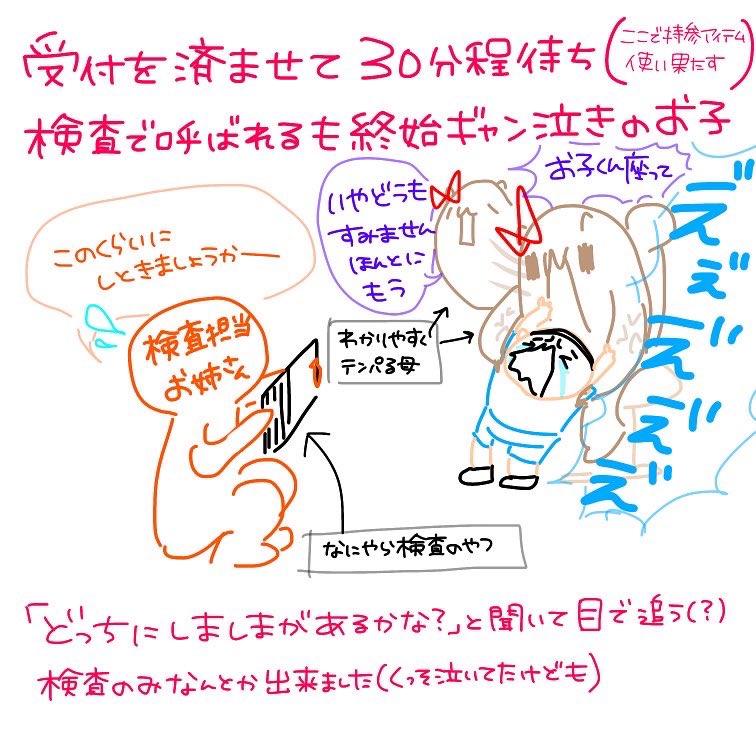 受付を済ませて30分程待ち
(ここで持参アイテム
使い果たす)
検査で呼ばれるも終始ギャン泣きのお子
お子くん座って
いやどうも
すみません
ほんとに
もう
このくらいに
しときましょうかー
検査担当
お姉さん
わかりやすく
テンパる母
びえぇぇん
なにやら検査のやつ
「どっちにしましまがあるかな?」と聞いて目で追う(?)
検査のみなんとか出来ました(くっそ泣いてたけども)